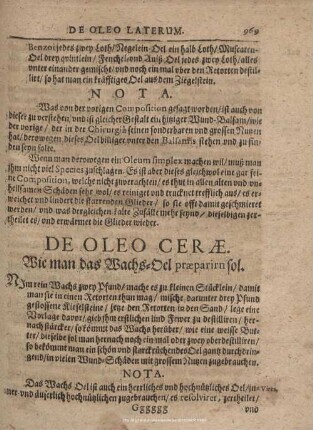 DE OLEO LATERUM. 969
Benzoi jedes zwey Loth/ Negelein-Oel ein halb Loth/ Muscaten-
Oel drey qvintlein/ Fenchel und Aniß-Oel jedes zwey Loth/ alles
unter einander gemischt/ und noch ein mal uber den Retorten destil-
lirt/ so hat man ein kräfftiges Oel auß dem Ziegelstein.
NOTA.
Was von der vorigen Composition gesagt worden/ ist auch von
dieser zu verstehen/ und ist gleicher Gestalt ein hitziger Wund-Balsam/ wie
der vorige/ der in der Chirurgiâ seinen sonderbaren und grossen Nutzen
hat/ derowegen dieses Oel billiger unter den Balsamis stehen und zu fin-
den seyn solte.
Wenn man derowegen ein Oleum simplex machen wil/ muß man
ihm nicht viel Species zuschlagen. Es ist aber dieses gleichwol eine gar fei-
ne Composition, welche nicht zu verachten/ es thut in allen alten und un-
heilsamen Schäden sehr wol/ es reiniget und trucknet trefflich auß/ es er-
weichet und lindert die starrenden Glieder/ so sie offt damit geschmieret
werden/ und was dergleichen kalte Zufälle mehr seynd/ dieselbigen zer-
theilet es/ und erwärmet die Glieder wieder.
DE OLEO CERÆ.
Wie man das Wachs-Oel præparirn sol.
Nim rein Wachs zwey Pfund/ mache es zu kleinen Stücklein/ damit
man sie in einen Retorten thun mag/ mische darunter drey Pfund
gestossene Kieselsteine/ setze den Retorten in den Sand/ lege eine
Vorlage davor/ gieb ihm erstlichen lind Fewer zu destilliren/ her-
nach stärcker/ so kömmt das Wachs herüber/ wie eine weisse But-
ter/ dieselbe sol man hernach noch ein mal oder zwey ober destilliren/
so bekömmt man ein schön und starckrüchendes Oel gantz durchdrin-
gend/ in vielen Wund-Schäden mit grossem Nutzen zugebrauchen.
NOTA.
Das Wachs Oel ist auch ein herrliches und hochnützliches Oel/ in-
ner und äusserlich hochnützlichen zugebrauchen/ es resolvirer, zertheilet/
Ggggg und